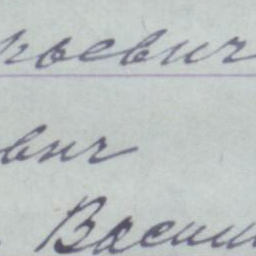 рьевич
вич
Васил